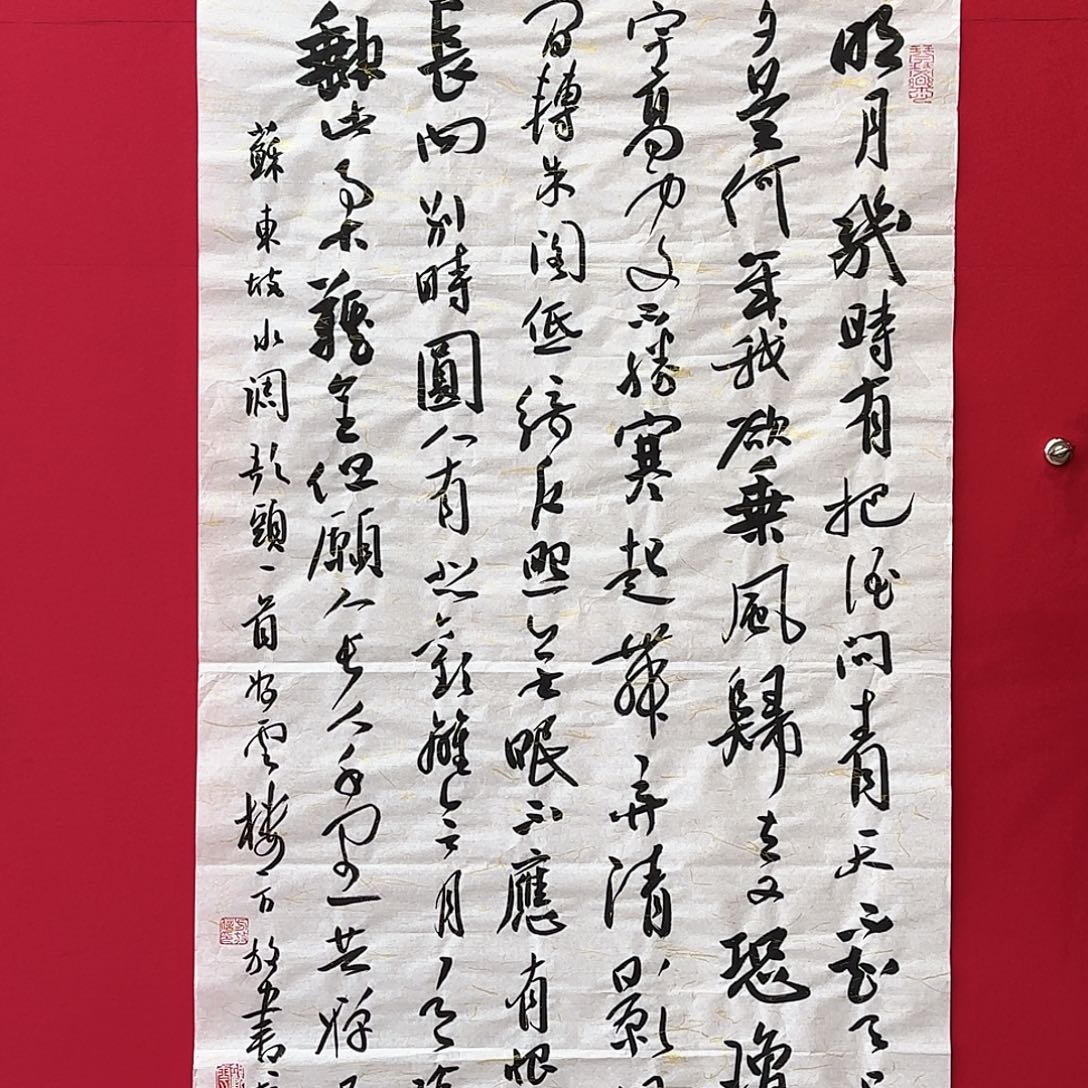 明月幾時有把酒問青天不知天
夕是何年我欲乘風歸去又恐瓊
宇高處不勝寒起舞弄清影
間轉朱閣低綺户照無眠不應有恨
長向別時圓人有悲歡離合月有陰
此事古難全但願人長久千里共嬋
蘇東坡水調歌頭一首好雲樓放書